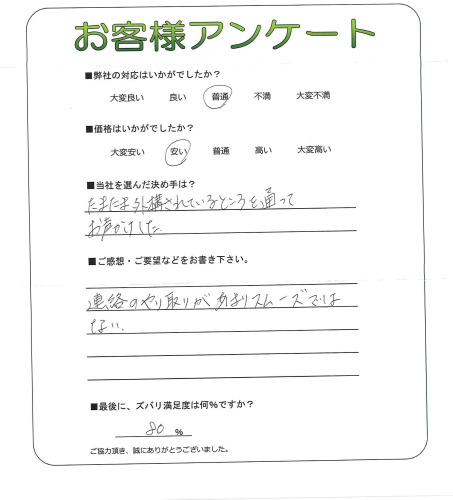 お客様アンケート
■弊社の対応はいかがでしたか？
大変良い 良い 普通 不満 大変不満
■価格はいかがでしたか？
大変安い 安い 普通 高い 大変高い
■当社を選んだ決め手は？
たまたま外構されているところを通って
お声がけした。
■ご感想・ご要望などをお書き下さい。
連絡のやり取りがあまりスムーズでは
ない。
■最後に、ズバリ満足度は何%ですか？
80 %
ご協力頂き、誠にありがとうございました。